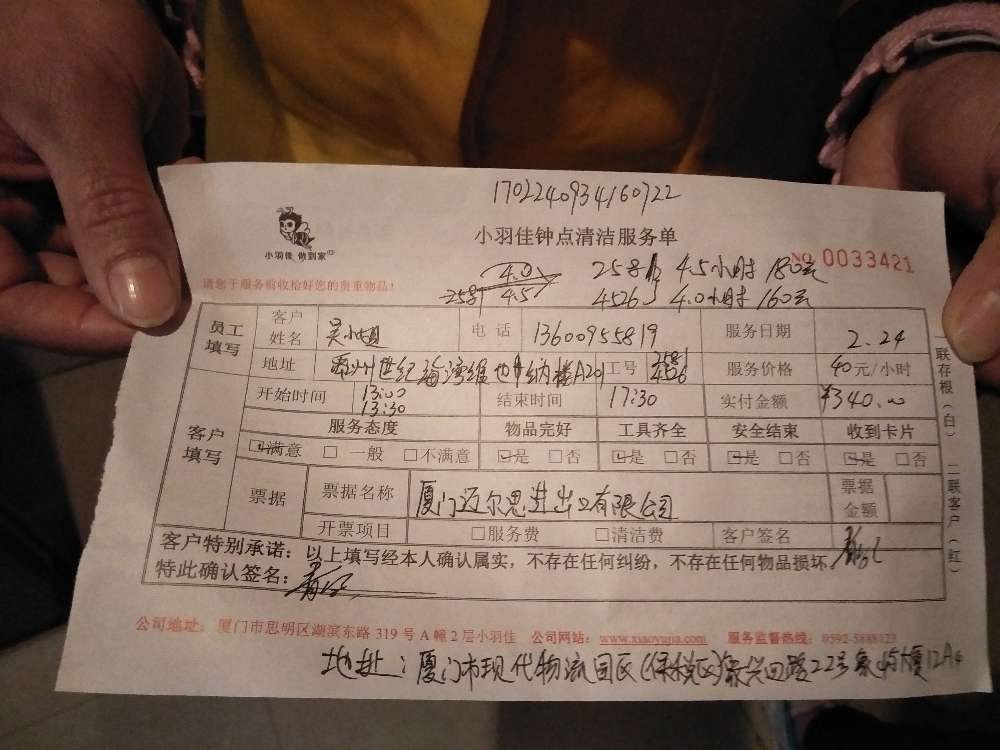 1702240934160722
小羽佳 做到家
小羽佳钟点清洁服务单
NO.0033421
4.0 2581 4.5小时 180元
请您于服务前收拾好您的贵重物品！
2581 4.5 4526 4.0小时 160元
员工填写 客户姓名 吴小姐 电话 13600955819 服务日期 2.24
地址 世纪海湾维也纳楼A201 工号 2581 4526 服务价格 40元/小时
客户填写 开始时间 13:00 13:30 结束时间 17:30 实付金额 ¥340.00
服务态度 物品完好 工具齐全 安全结束 收到卡片
☑满意 □一般 □不满意 ☑是 □否 ☑是 □否 ☑是 □否 ☑是 □否
票据 票据名称 厦门迈尔思进出口有限公司 票据金额
开票项目 □服务费 □清洁费 客户签名
客户特别承诺：以上填写经本人确认属实，不存在任何纠纷，不存在任何物品损坏
特此确认签名：
一联存根（白） 二联客户（红）
公司地址：厦门市思明区湖滨东路319号A幢2层小羽佳 公司网站：www.xiaoyujia.com 服务监督热线：0592-5888123
地址：厦门市现代物流园区(保税区) 22号 12A